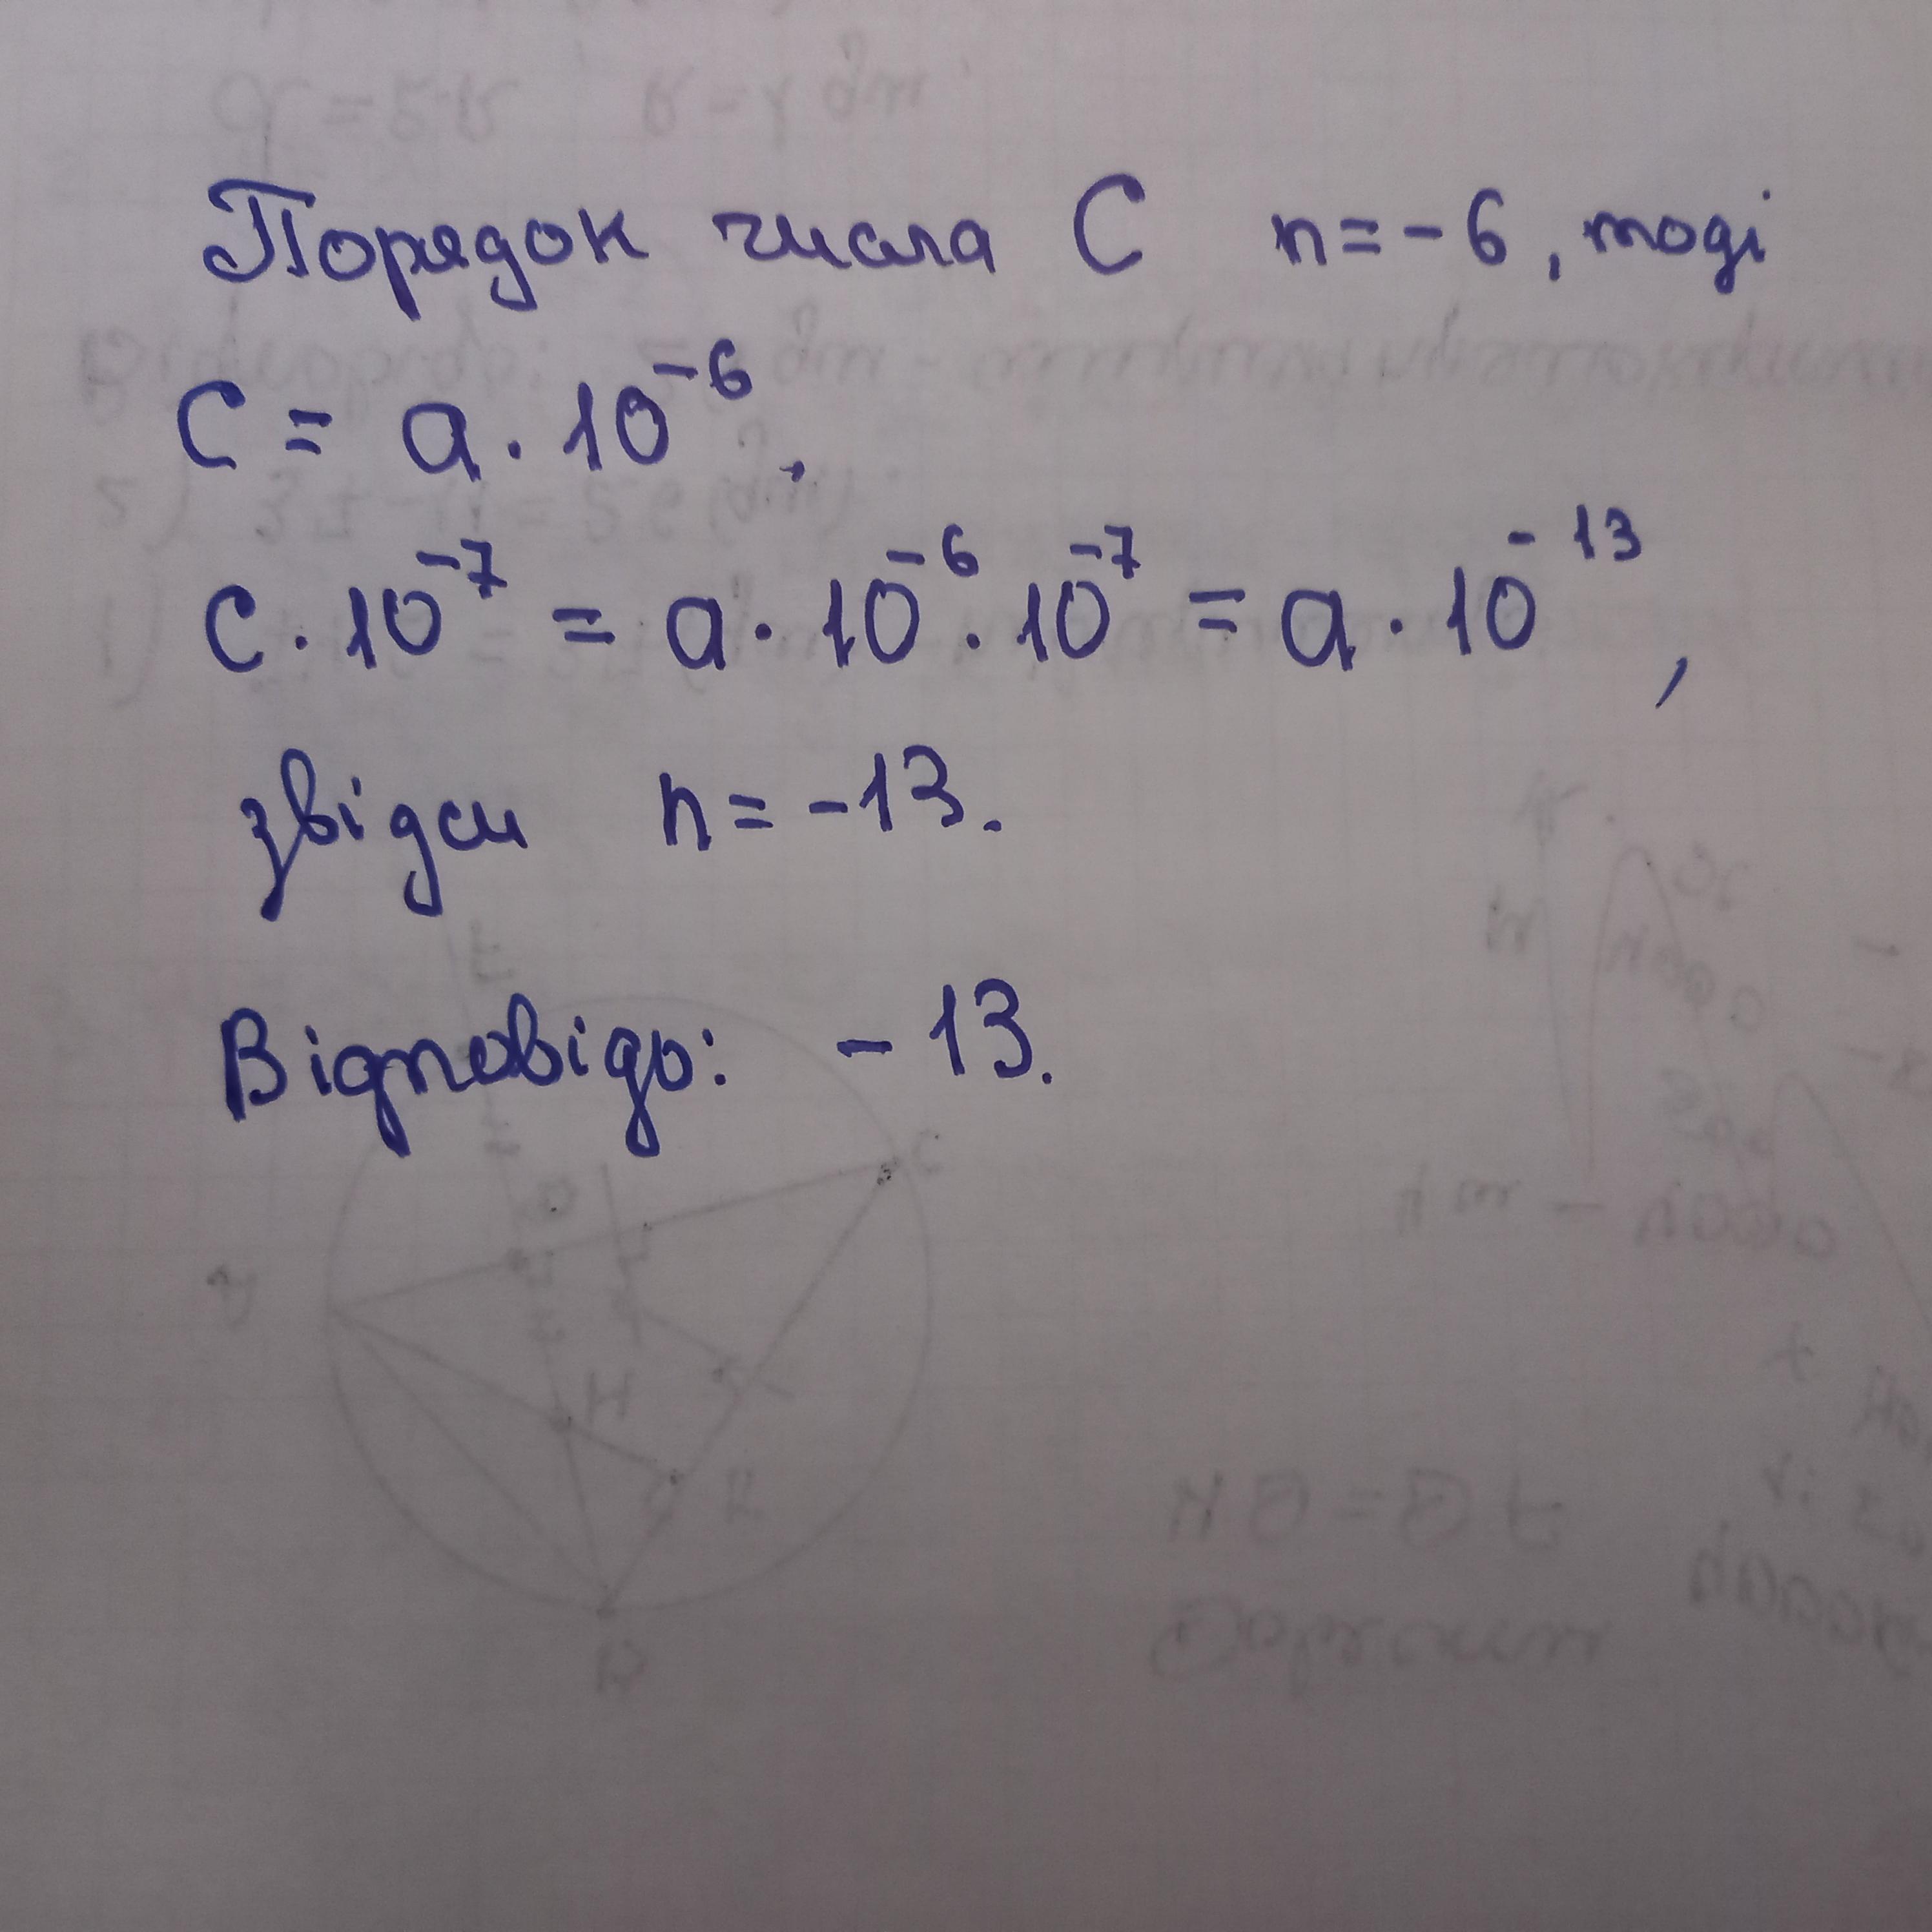 Порядок числа C n = -6, тоді
C = a · 10⁻⁶,
C · 10⁻⁷ = a · 10⁻⁶ · 10⁻⁷ = a · 10⁻¹³,
звідси n = -13.
Відповідь: -13.